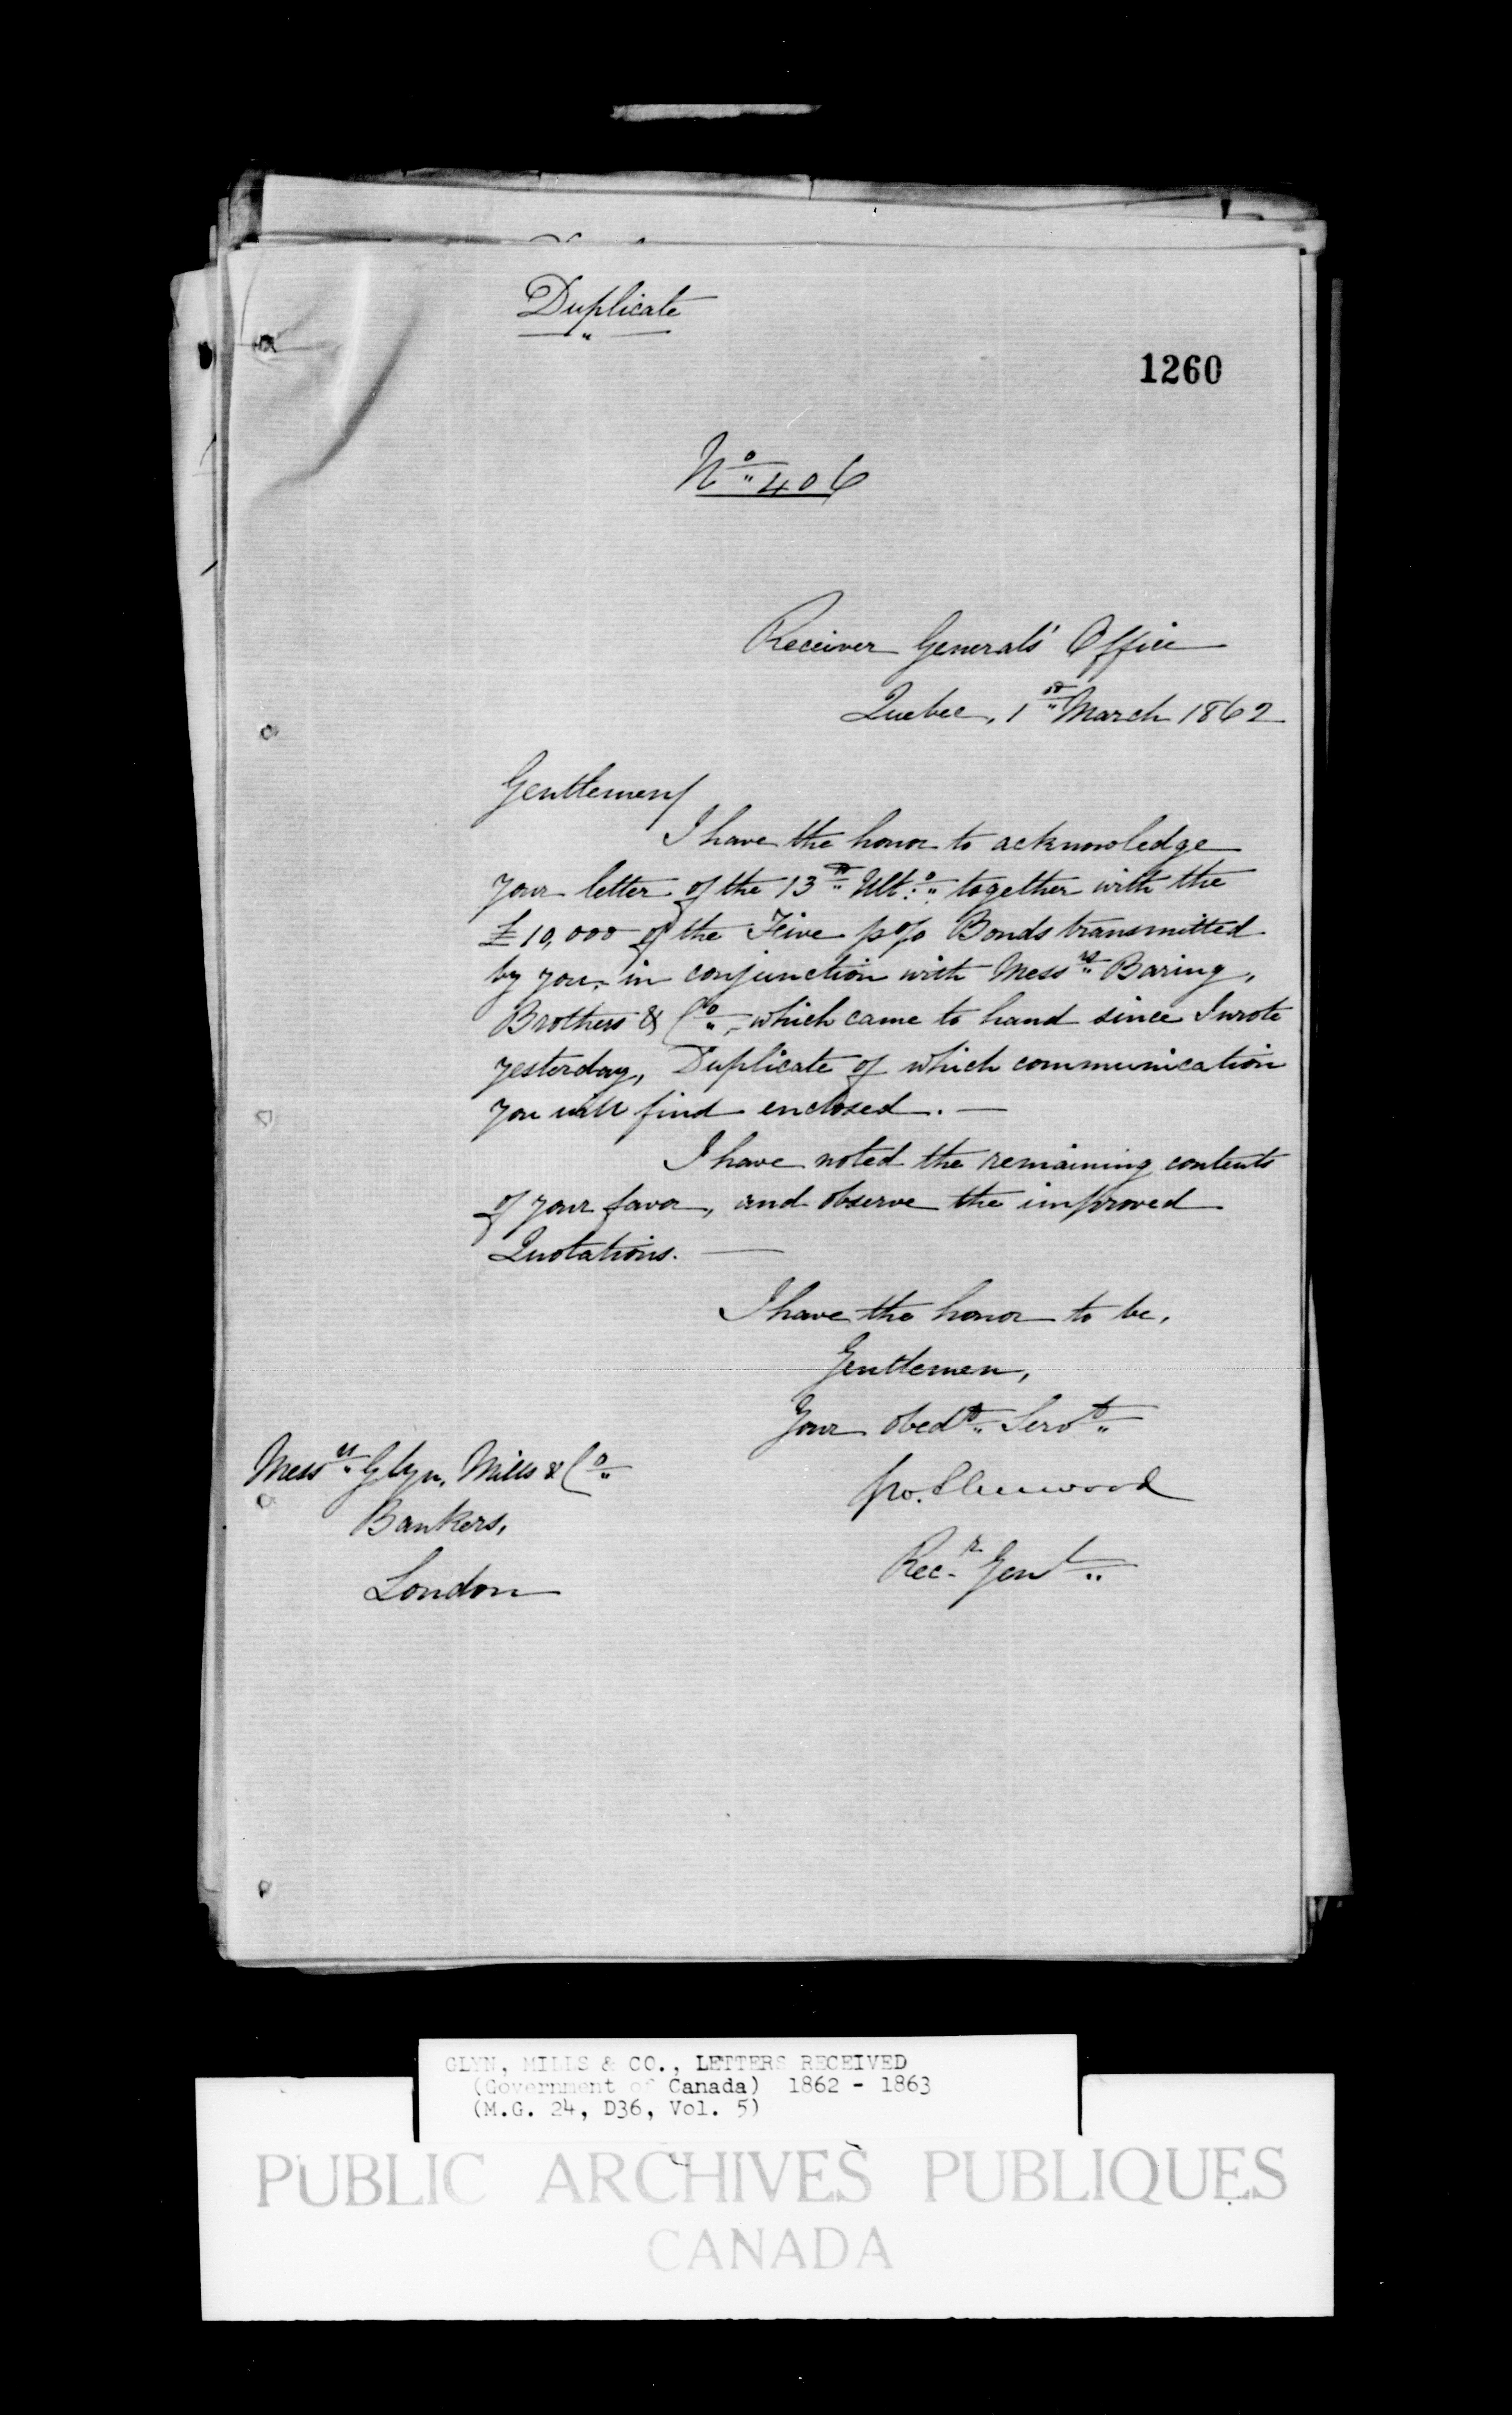 Duplicate
1260
No 406
Receiver Generals' Office
Quebec, 1st March 1862
Gentlemen/
I have the honor to acknowledge
your letter of the 13th Ulto: together with the
£10,000 of the Five p% Bonds transmitted
by you, in conjunction with Messrs Baring,
Brothers & Co, which came to hand since I wrote
yesterday, Duplicate of which communication
you will find enclosed. —
I have noted the remaining contents
of your favor, and observe the improved
Quotations. —
I have the honor to be,
Gentlemen,
Your obedt Servt
Jno. Sherwood
Recr Genl
Messrs Glyn, Mills & Co
Bankers,
London
GLYN, MILLS & CO., LETTERS RECEIVED
(Government of Canada) 1862 - 1863
(M.G. 24, D36, Vol. 5)
PUBLIC ARCHIVES PUBLIQUES
CANADA